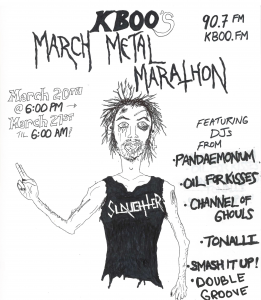 KBOO's
90.7 FM
KBOO.FM
MARCH METAL
MARATHON
March 20TH
@ 6:00 PM →
March 21st
'TIL 6:00 AM!
FEATURING
DJs
FROM
• PANDAEMONIUM
• OIL FOR KISSES
• CHANNEL OF
GHOULS
• TONALLI
• SMASH IT UP!
• DOUBLE
GROOVE
SLAUGHTER